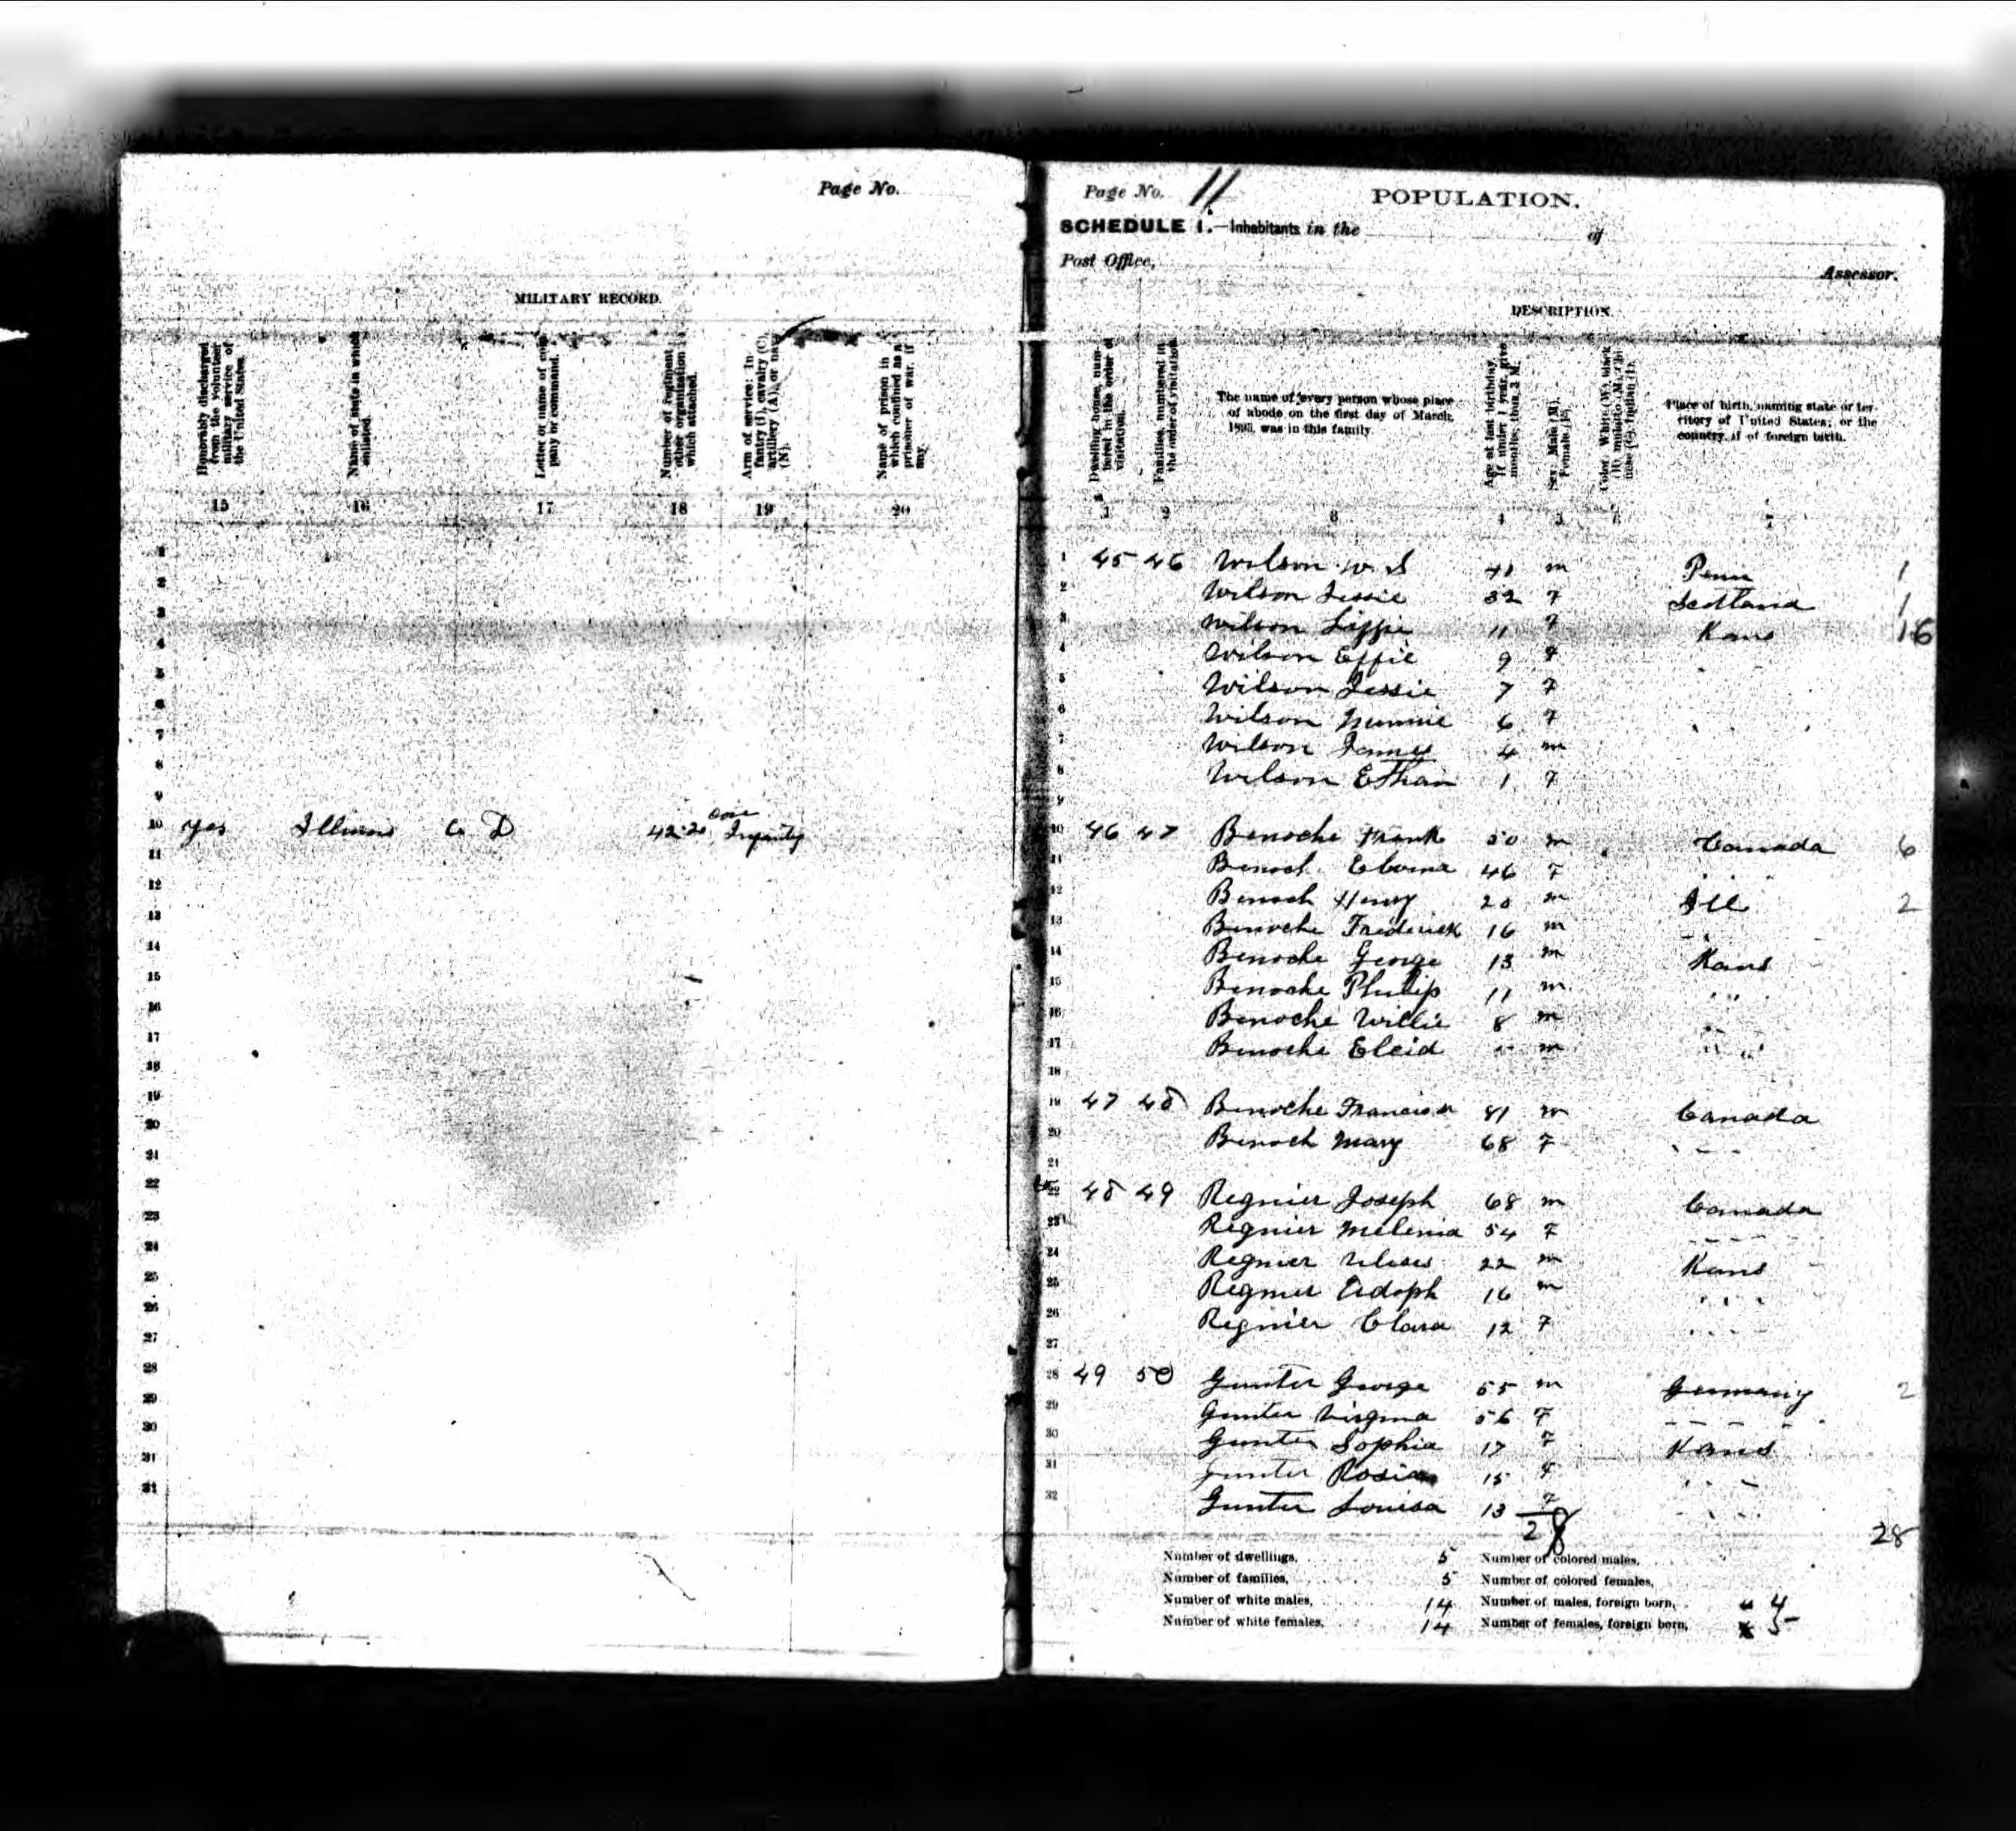 Page No.
MILITARY RECORD.
Honorably discharged from the volunteer military service of the United States.
Name of state in which enlisted.
Letter or name of company or command.
Number of regiment or other organization to which attached.
Arm of service: Infantry (I), cavalry (C), artillery (A), or navy (N).
Name of prison in which confined as a prisoner of war, if any.
15 16 17 18 19 20
1
2
3
4
5
6
7
8
9
10 yes Illinois Co D 42-20 Infantry
11
12
13
14
15
16
17
18
19
20
21
22
23
24
25
26
27
28
29
30
31
Page No. 11 POPULATION.
SCHEDULE 1.—Inhabitants in the of
Post Office,
Assessor.
DESCRIPTION.
Dwelling house, numbered in the order of visitation.
Families, numbered in the order of visitation.
The name of every person whose place of abode on the first day of March, 1895, was in this family.
Age at last birthday. If under 1 year, give months, thus, 3 M.
Sex: Male (M), Female (F).
Place of birth, naming state or territory of United States; or the country, if of foreign birth.
1 45 46 Wilson W. S 41 m Penn 1
2 Wilson Jessie 32 F Scotland 1
3 Wilson Lizzie 11 F Kans 16
4 Wilson Effie 9 F
5 Wilson Jessie 7 F
6 Wilson 6 F
7 Wilson James 4 m
8 Wilson Ethan 1 F
9
10 46 47 Benoche Frank 50 m Canada 6
11 Benoch 46 F
12 Benoch Henry 20 m Ill 2
13 Benoche Frederick 16 m
14 Benoche George 13 m Kans
15 Benoche Phillip 11 m
16 Benoche Willie 8 m
17 Benoche Eleid m
18
19 47 48 Benoche 81 m Canada
20 Benoch Mary 68 F
21
22 48 49 Regnier Joseph 68 m Canada
23 Regnier Melenia 54 F
24 Regnier Ulises 22 m Kans
25 Regnier Adoph 16 m
26 Regnier Clara 12 F
27
28 49 50 Gunter George 55 m Germany 2
29 Gunter Virginia 56 F
30 Gunter Sophia 17 F Kans
31 Gunter Rosia 15 F
32 Gunter Louisa 13 F
28 28
Number of dwellings, 5 Number of colored males,
Number of families, 5 Number of colored females,
Number of white males, 14 Number of males, foreign born, 4
Number of white females, 14 Number of females, foreign born, 5